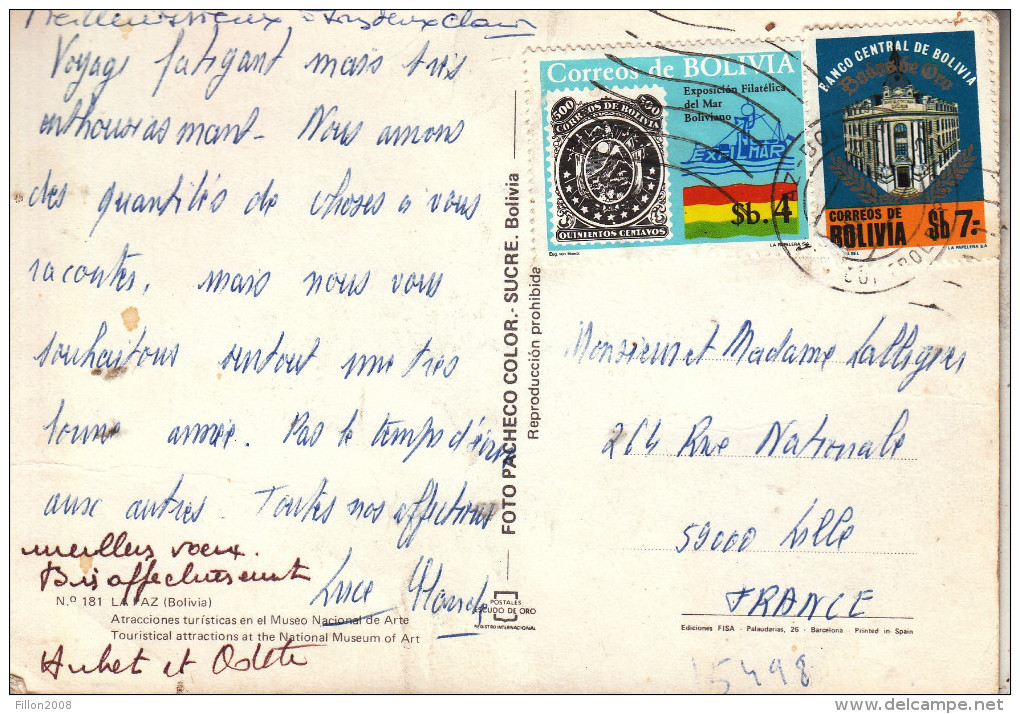 Voyage fatigant mais très
enthousiasmant - Nous avons
des quantités de choses à vous
raconter, mais nous vous
souhaitons surtout une très
bonne année. Pas le temps d'écrire
aux autres. Toutes nos affections
Luce
meilleurs voeux.
Bis affectueusement
N.º 181 LA PAZ (Bolivia)
Atracciones turísticas en el Museo Nacional de Arte
Touristical attractions at the National Museum of Art
et Odette
FOTO PACHECO COLOR.- SUCRE. Bolivia
Reproducción prohibida
POSTALES
ESCUDO DE ORO
REGISTRO INTERNACIONAL
Correos de BOLIVIA
Exposición Filatélica
del Mar
Boliviano
500 500
CORREOS DE BOLIVIA
QUINIENTOS CENTAVOS
EXFILMAR
$b.4
LA PAPELERA S.A.
BANCO CENTRAL DE BOLIVIA
Bodas de Oro
CORREOS DE
BOLIVIA
$b 7.-
LA PAPELERA S.A.
Monsieur et Madame
264 Rue Nationale
59000 Lille
FRANCE
Ediciones FISA - Palaudarias, 26 - Barcelona - Printed in Spain
15498
© Fillon2008
http://www.delcampe.net